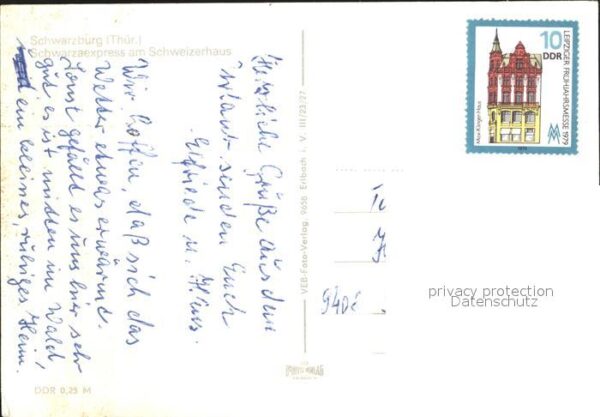 Schwarzburg (Thür.)
Schwarzaexpress am Schweizerhaus
Herzliche Grüße aus dem
Urlaub senden Euch
Elfriede u. Hans.
Wir hoffen, daß sich das
Wetter etwas erwärmt.
Sonst gefällt es uns hier sehr
gut, es ist mitten im Wald
ein kleines, ruhiges Heim.
DDR 0,25 M
VEB-Foto-Verlag, 9658 Erlbach i. V. III/23/27
FOTO-VERLAG
10
DDR
LEIPZIGER FRÜHJAHRSMESSE 1979
Max-Klinger-Haus
1979
MM
940
privacy protection
Datenschutz